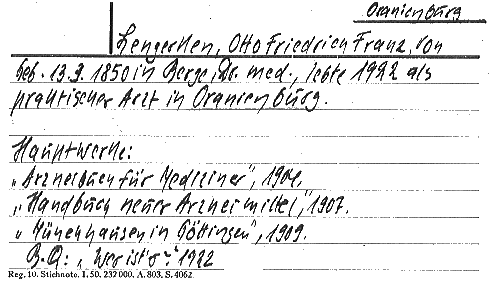 Oranienburg
Lengerken, Otto Friedrich Franz, von
Geb. 13.9.1850 in Berge, Dr. med., lebte 1922 als
praktischer Arzt in Oranienburg.
Hauptwerke:
„Arzneibuch für Mediziner", 1904.
„Handbuch neuer Arzneimittel", 1907.
„Münchhausen in Göttingen", 1909.
B.Q.: „Wer ist's?" 1922
Reg. 10. Stichnote. I. 50. 232 000. A. 803. S. 4062.